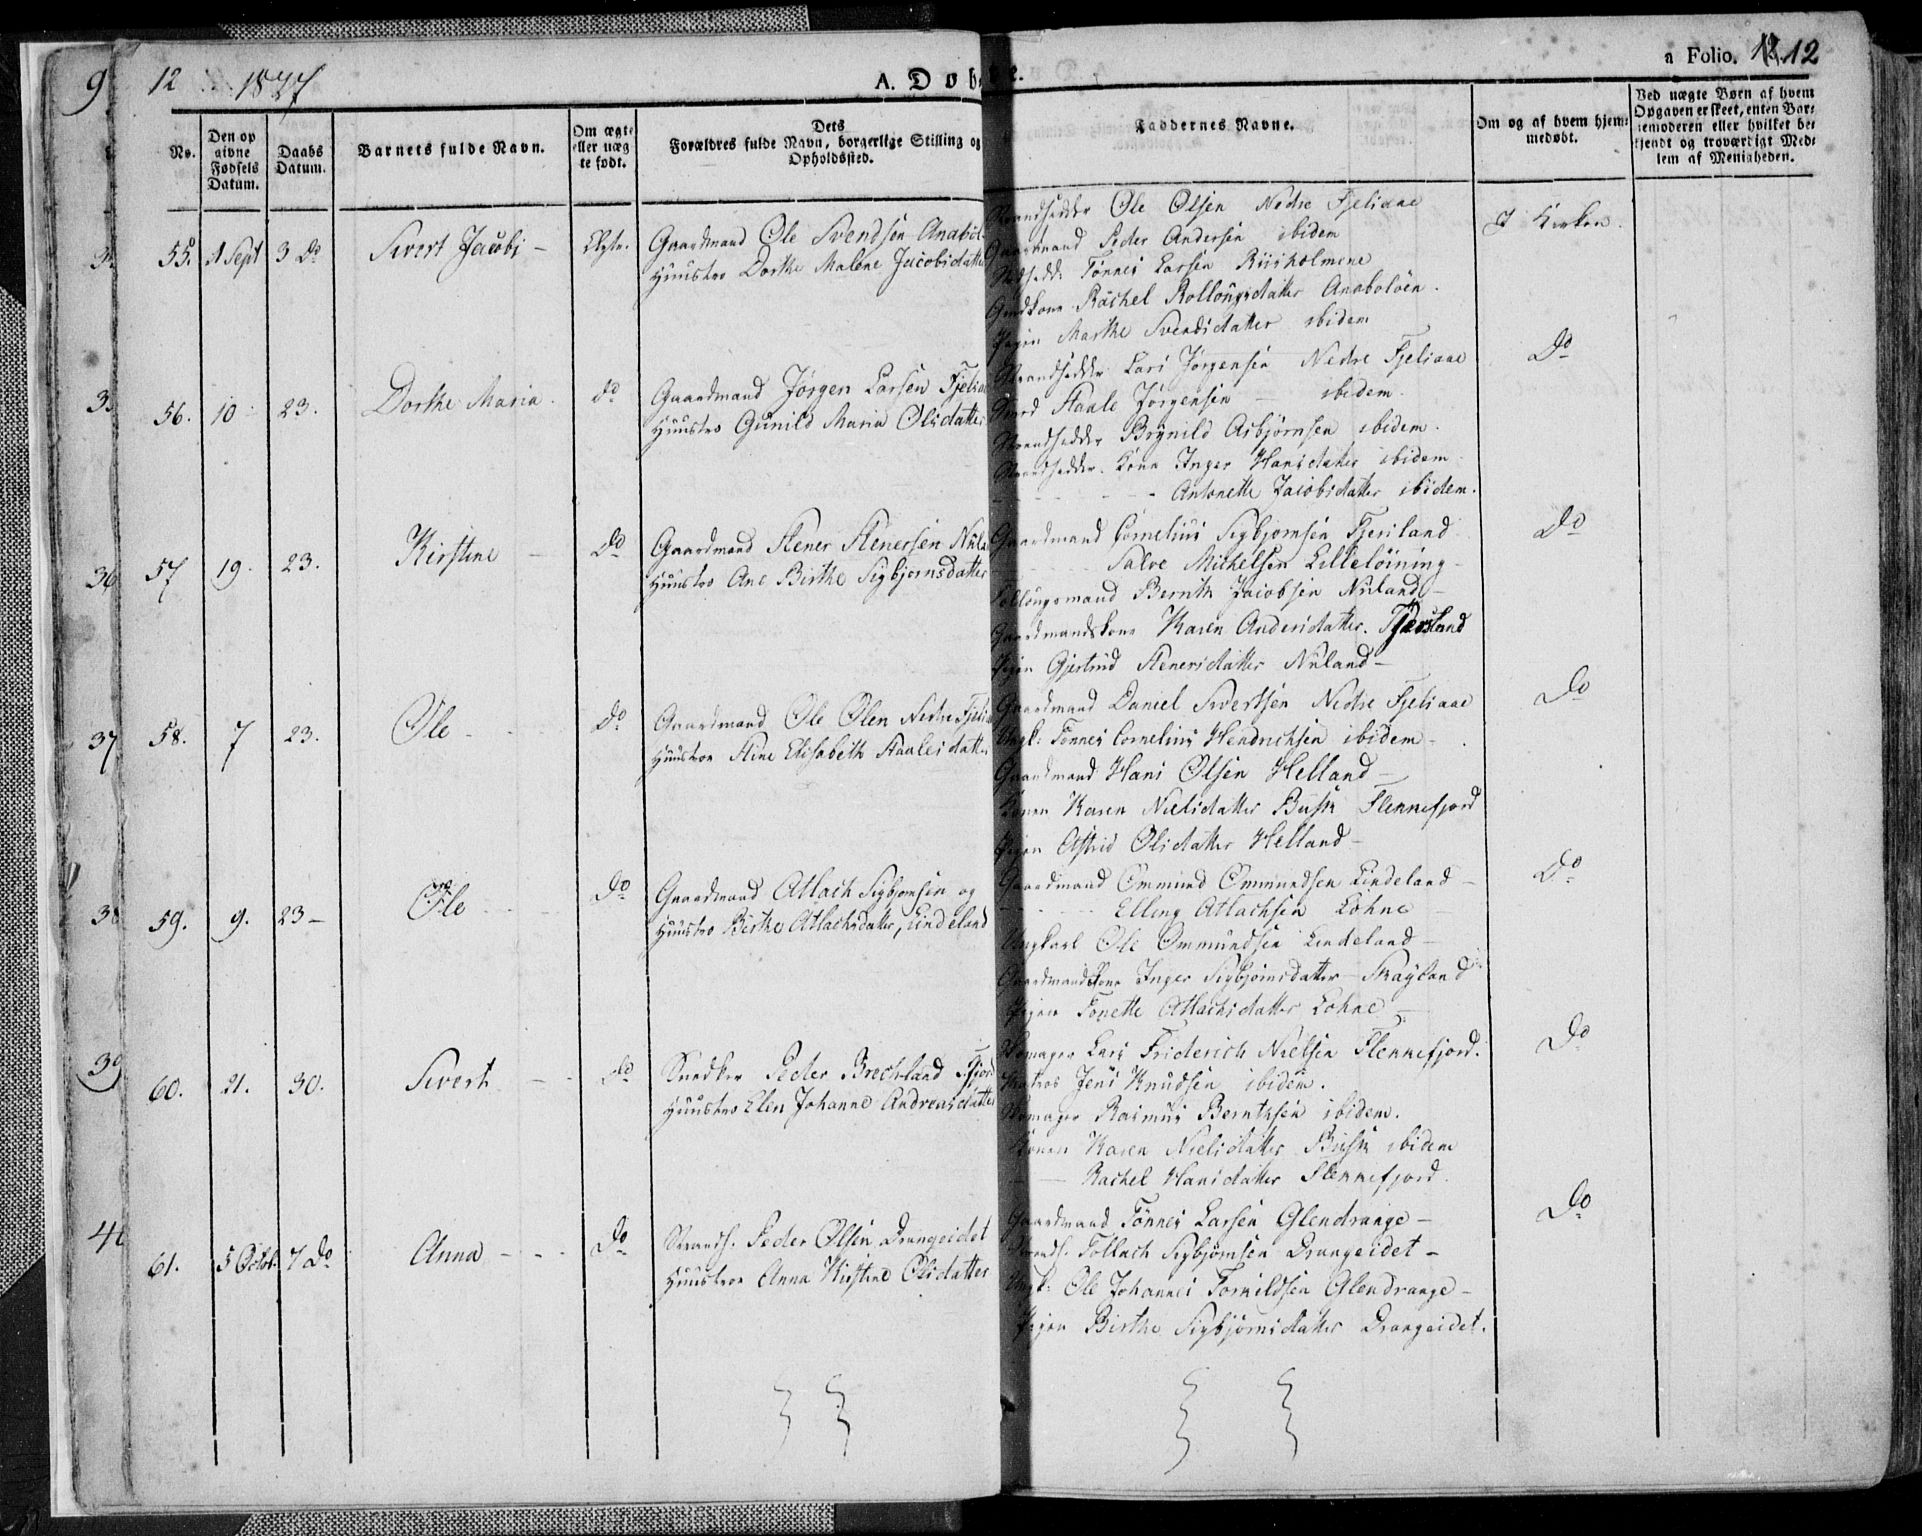 9 12 1827 A. Døbte. a Folio. 12 12
No.
Den op
givne
Fødsels
Datum.
Daabs
Datum.
Barnets fulde Navn.
Om ægte
eller uæg
te født.
Dets
Forældres fulde Navn, borgerlige Stilling og
Opholdssted.
Faddernes Navne.
Om og af hvem hjem-
medøbt.
Ved uægte Børn af hvem
Opgaven er skeet, enten Bar-
nemoderen eller hvilket be-
kjendt og troværdigt Med-
lem af Menigheden.
55. 1 Sept 3 Do Sivert Jacobi - Ægte.
Gaardmand Ole Svendsen Anabol
Huustro Dorthe Malene Jacobsdatter
Strandsidder Ole Olsen Nedre Fjeliaae
Gaardmand Peder Andersen ibidem
Tønnes Larsen Riisholmene
Rachel Rollougsdatter Anaboløen.
Pigen Marthe Svendsdatter ibidem
I Kirken.
56. 10 23. Dorthe Maria. do
Gaardmand Jørgen Larsen Fjeliaae
Huustro Gunild Maria Olsdatter
Strandsidder Lars Jørgensen Nedre Fjeliaae
Staale Jørgensen - ibidem.
Strandsidder Brynild Asbjørnsen ibidem.
Strandsidder Kone Inger Hansdatter ibidem
Antonette Jacobsdatter ibidem.
Do
36 57 19 23. Kirstine - Do
Gaardmand Stener Stenersen Nuland
Huustro Ane Birthe Sigbjørnsdatter
Gaardmand Cornelius Sigbjørnsen Fjersland
Salve Michelsen Lilleløining -
Follougsmand Bernth Jacobsen Nuland -
Gaardmandskone Karen Andersdatter. Fjersland
Pigen Gjertrud Stenersdatter Nuland -
Do
37 58. 7 23. Ole - Do
Gaardmand Ole Olsen Nedre Fjeli
Huustroe Stine Elisabeth Staalesdatter
Gaardmand Daniel Sivertsen Nedre Fjeliaae
Ungk: Tønnes Cornelius Hendrichsen ibidem -
Gaardmand Hans Olsen Helland -
Konen Karen Nielsdatter Busk Flennefjord
Pigen Astrid Olsdatter Helland -
Do
38 59. 9. 23 - Ole - Do
Gaardmand Atlach Sigbjørnsen og
Huustro Birthe Atlachsdatter, Lindeland
Gaardmand Ommund Ommundsen Lindeland -
Elling Atlachsen Lohne
Ungkarl Ole Ommundsen Lindeland -
Gaardmandskone Inger Sigbjørnsdatter - Skayland
Pigen Tonette Atlachsdatter Lohne -
Do
39 60. 21. 30. Sivert - Do
Snedker Peder Brechland
Huustro Elen Johanne Andreasdatter
Lars Friderich Nielsen Flennefjord.
Matros Jens Knudsen ibidem.
Rasmus Berntsen ibidem.
Konen Karen Nielsdatter Busk ibidem
Rachel Hansdatter Flennefjord.
Do
61. 5 Octob. 7 Do Anna - Do
Strands. Peder Olsen Drangeidet
Huustroe Anna Kirstine Olsdatter
Gaardmand Tønnes Larsen Glendrange -
Strands. Tollach Sigbjørnsen Drangeidet -
Ungk: Ole Johannes Tomildsen Glendrange -
Pigen Birthe Sigbjørnsdatter Drangeidet.
Do